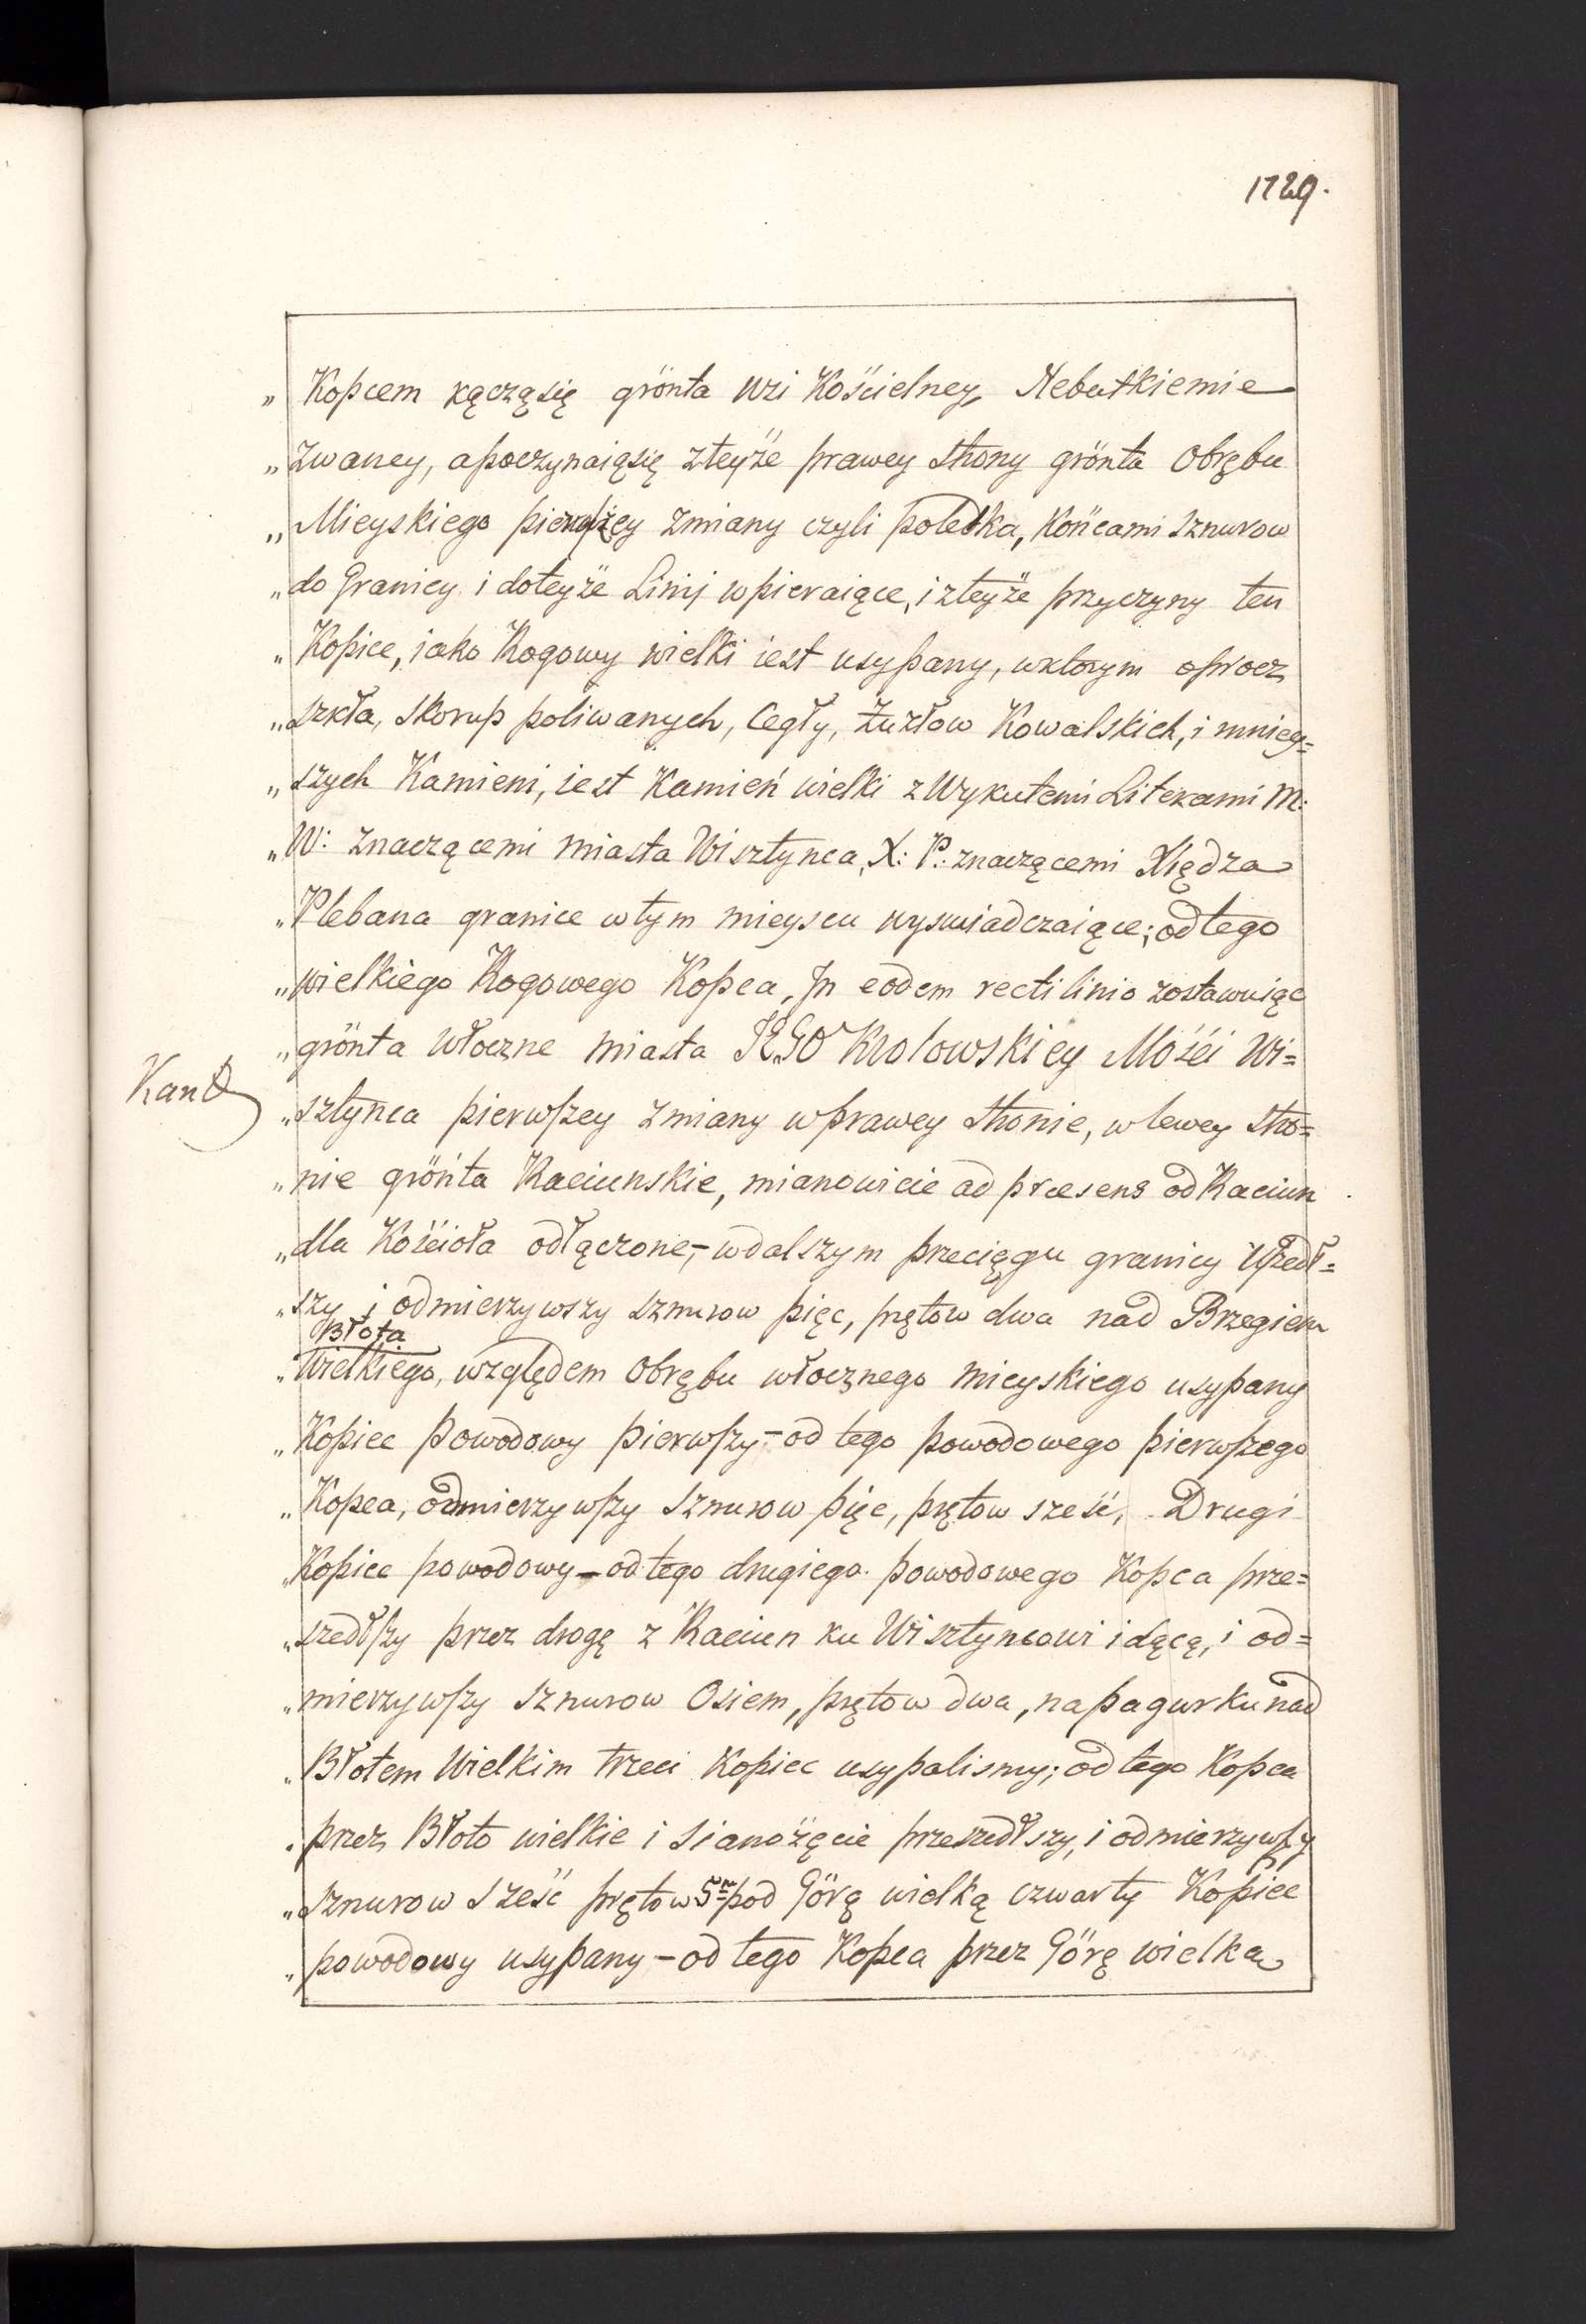 1729.
„ Kopcem kączą się grönta wsi Kościelney, Nebutkiemie
„ Zwaney, a poczynaią się z teyże prawey strony grönta Obrębu
„ Mieyskiego pierwszey Zmiany czyli poletka, Końcami sznurow
„ do Granicy i do teyże Linij wpieraiące, i z teyże przyczyny ten
„ Kopice, iako Rogowy wielki iest usypany, w ktorym oprocz
„ szkła, skorup poliwanych, Cegły, Żużłow Kowalskich, i mniey=
„ szych Kamieni, iest Kamień wielki z Wykutemi Literami M:
„ W: Znaczącemi miasta Wisztynca, X: P: znaczącemi Xiędza
„ Plebana granice w tym mieyscu wyswiadczaiące; od tego
„ wielkiego Rogowego Kopca, In eodem rectilinio zostawuiąc
„ grönta Włoczne miasta JEGO Krolowskiey Mości Wi=
Kant
„ sztynca pierwszey Zmiany w prawey stronie, w lewey stro=
„ nie grönta Raciunskie, mianowicie ad præsens od Raciun
„ dla Kościoła odłączone,– w dalszym przecięgu granicy Uszedł=
„ szy i odmierzywszy sznurow pięc, prętow dwa nad Brzegiem
Błota
„ Wielkiego, względem Obrębu włocznego mieyskiego usypany
„ Kopiec Powodowy pierwszy – od tego powodowego pierwszego
„ Kopca, odmierzywszy Sznurow pięc, prętow sześć, Drugi
„ Kopiec powodowy – od tego drugiego powodowego Kopca prze=
„ szedłszy przez drogę z Raciun ku Wisztyncowi idącą, i od=
„ mierzywszy Sznurow Osiem, prętow dwa, na pagurku nad
„ Błotem Wielkim trzeci Kopiec usypalismy; od tego Kopca
„ przez Błoto wielkie i Sianożęcie przeszedłszy, i odmierzywszy
„ sznurow sześć prętow 5m pod Görę wielką czwarty Kopiec
„ powodowy usypany – od tego Kopca przez Görę wielka